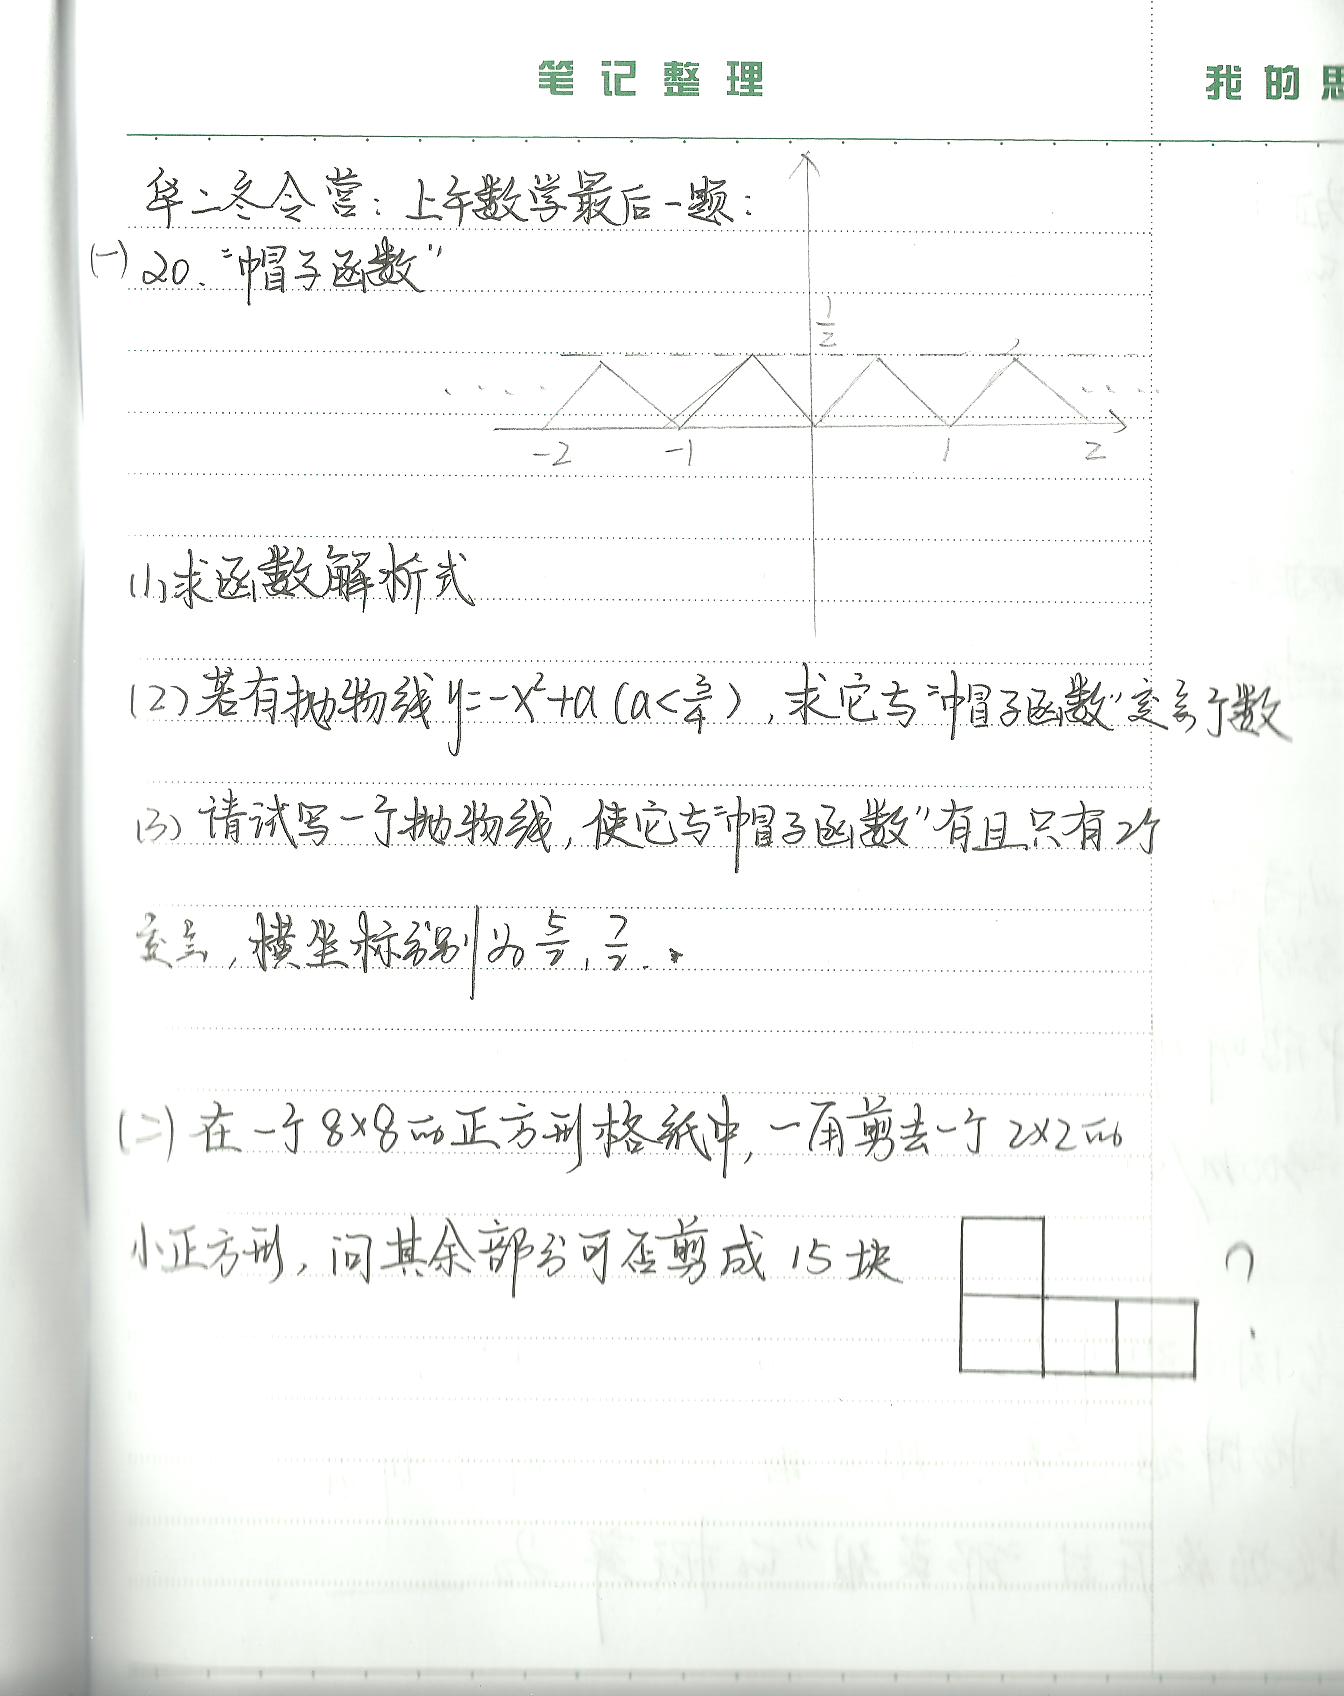 笔记整理
我的思
华二冬令营：上午数学最后一题：
(一) 20. “帽子函数”
1/2
-2 -1 1 2
(1) 求函数解析式
(2) 若有抛物线 y=-x²+a (a<3/4), 求它与“帽子函数”交点个数
(3) 请试写一个抛物线, 使它与“帽子函数”有且只有2个
交点, 横坐标分别为 5/2, 7/2.
(二) 在一个8×8的正方形格纸中, 一角剪去一个2×2的
小正方形, 问其余部分可否剪成 15 块 ?